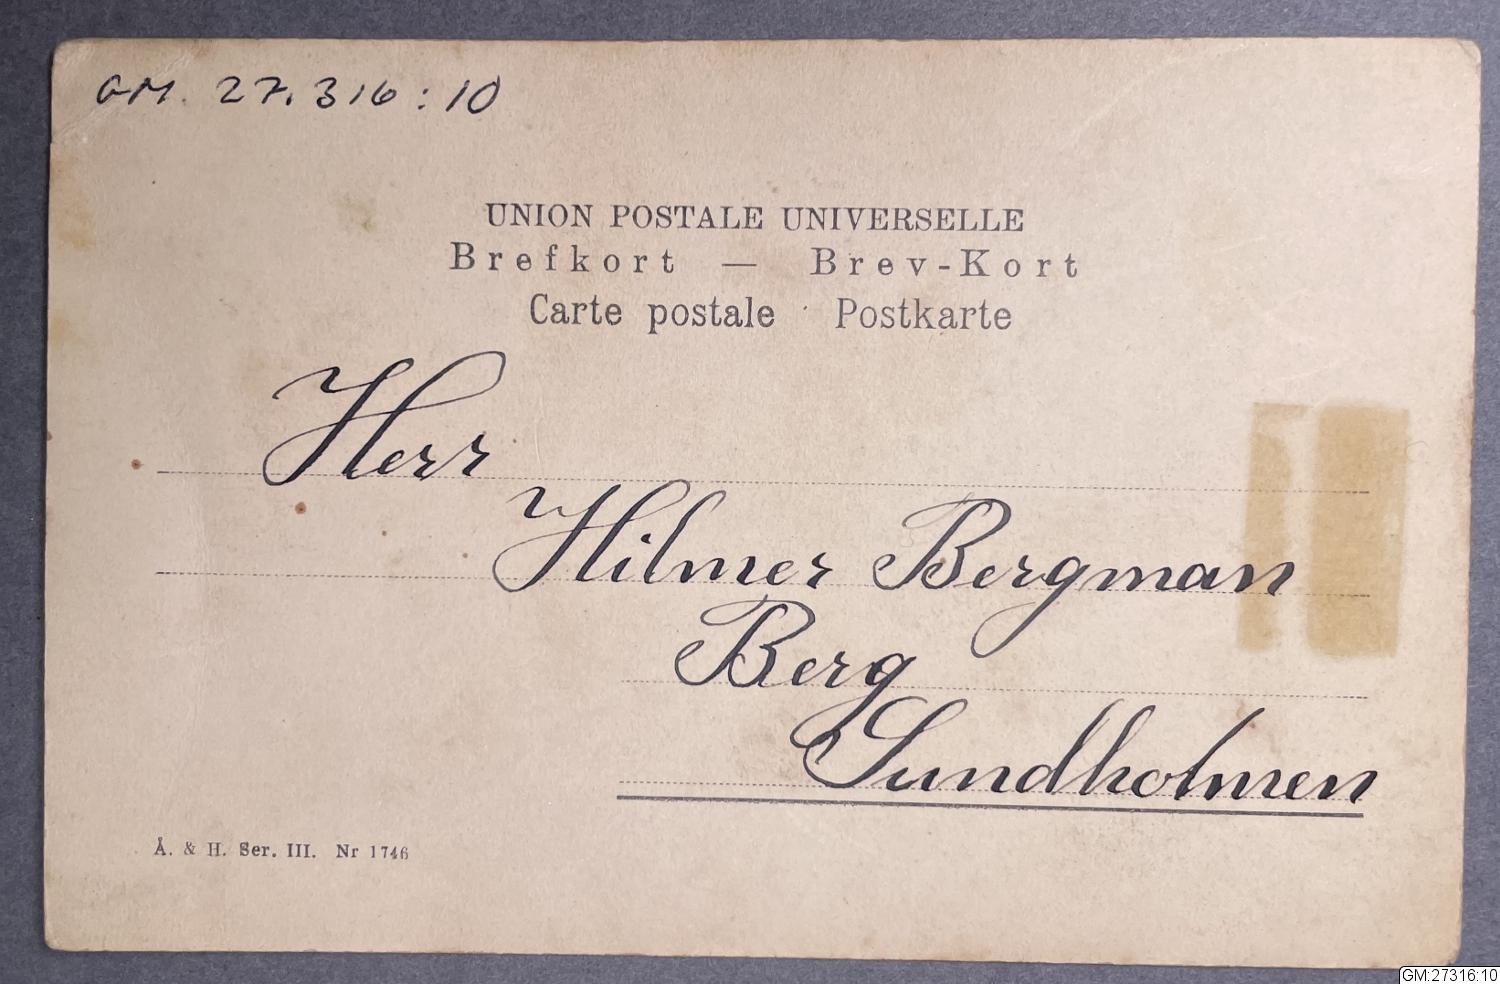 GM. 27.316:10
UNION POSTALE UNIVERSELLE
Brefkort — Brev-Kort
Carte postale Postkarte
Herr
Hilmer Bergman
Berg
Sundholmen
Å. & H. Ser. III. Nr 1746
GM:27316:10